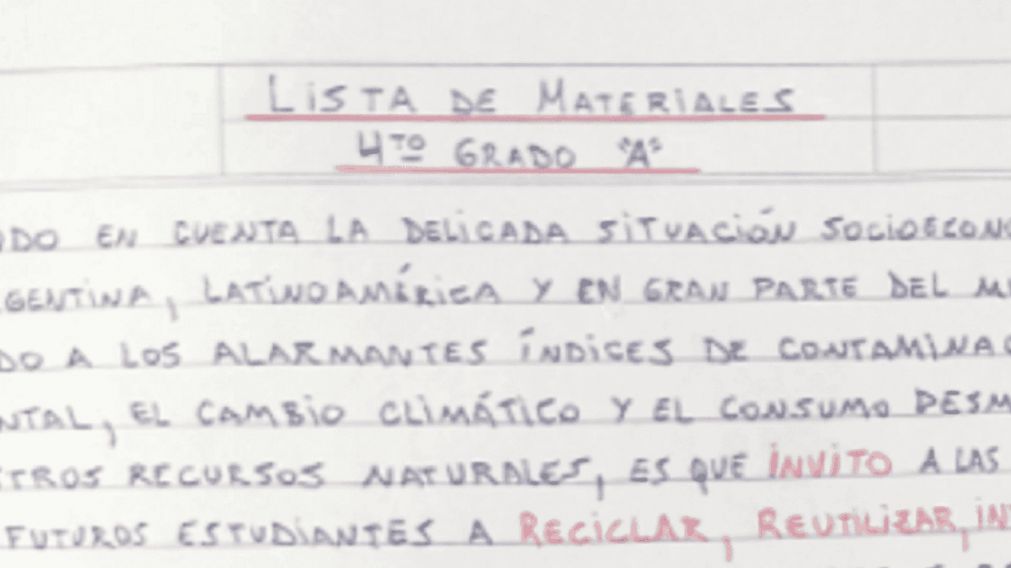 LISTA DE MATERIALES
4TO GRADO "A"
EN CUENTA LA DELICADA SITUACIÓN
LATINOAMÉRICA Y EN GRAN PARTE DEL
A LOS ALARMANTES ÍNDICES DE
EL CAMBIO CLIMÁTICO Y EL CONSUMO
RECURSOS NATURALES, ES QUE INVITO A LAS
FUTUROS ESTUDIANTES A RECICLAR, REUTILIZAR,